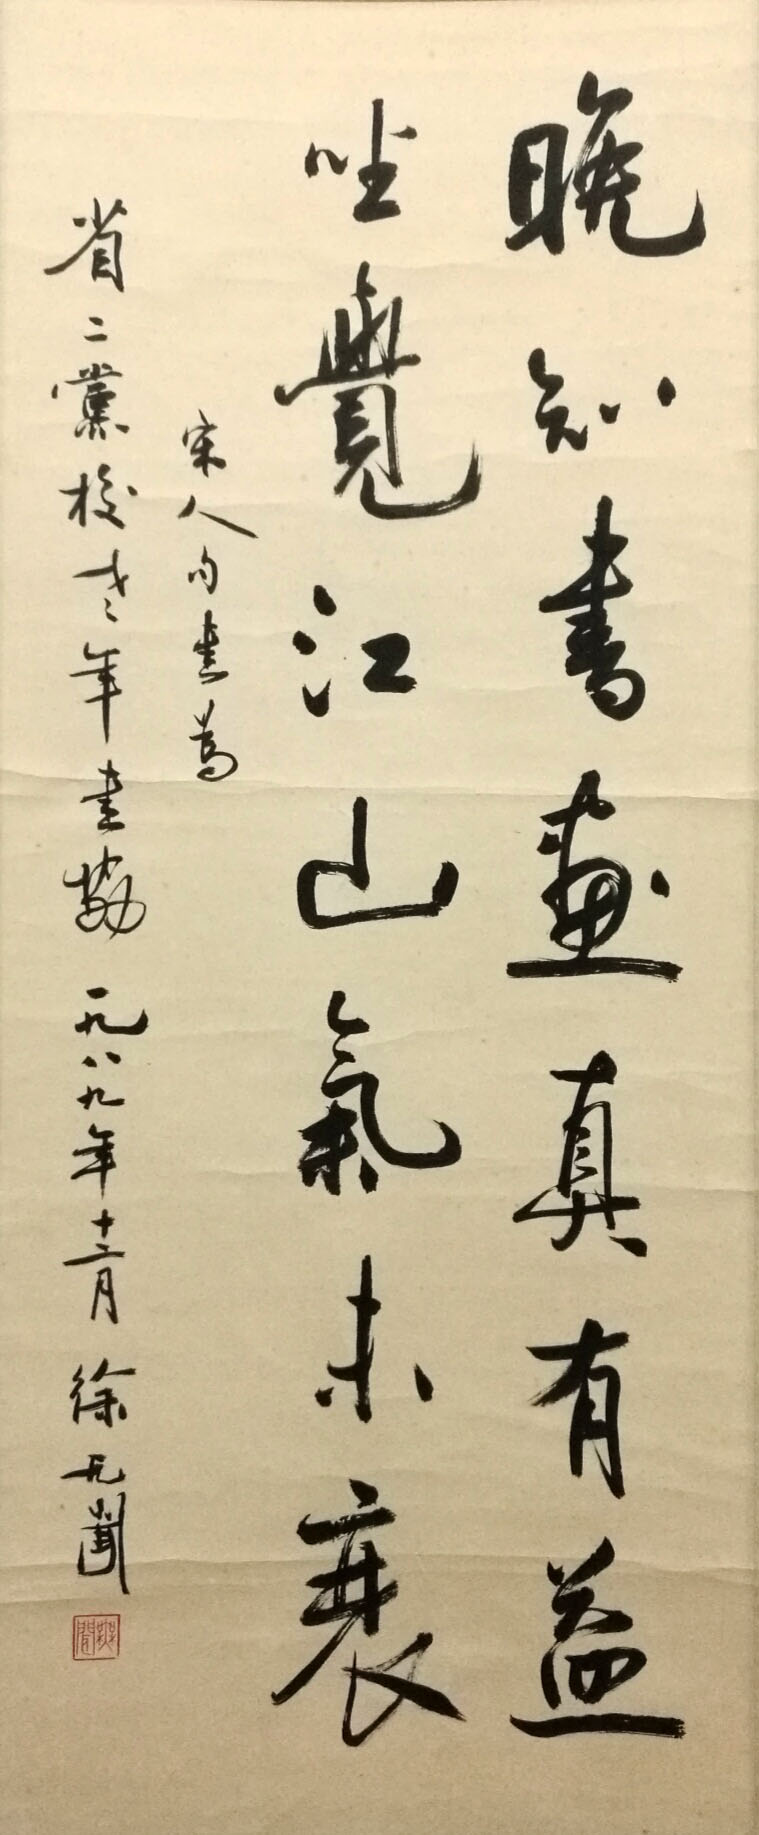 晚知書畫真有益
坐覺江山氣未衰
宋人句書為
省二黨校老年書協 一九八九年十二月 徐無聞
無聞